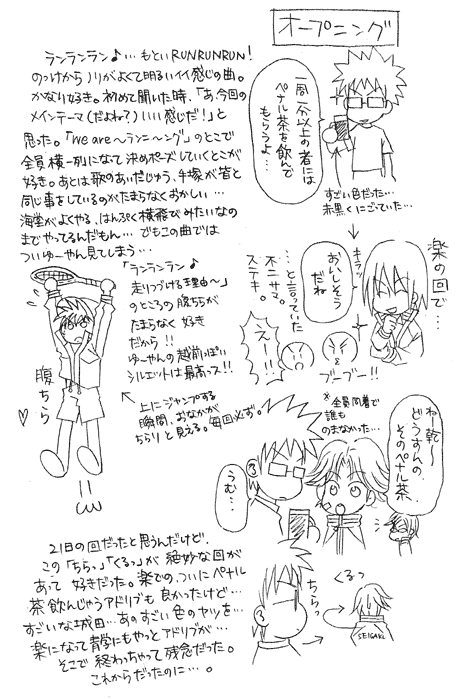 オープニング
ランランラン♪…もといRUNRUNRUN!
のっけからノリがよくて明るいイイ感じの曲。
かなり好き。初めて聞いた時、「あ、今回の
メインテーマ(だよね?)いい感じだ!」と
思った。「We are〜ランニ〜ング」のとこで
全員横一列になって決めポーズしていくとこが
好き。あとは歌のあいだじゅう、手塚が皆と
同じ事をしているのがたまらなくおかしい…
海堂がよくやる、はんぷく横飛びみたいなの
までやってるんだもん…でもこの曲では
ついゆーやん見てしまう…
「ランランラン♪
走りつづける理由〜」
のところの腹ちらが
たまらなく好き
だから!!
ゆーやんの越前っぽい
シルエットは最高っス!!
上にジャンプする
瞬間、おなかが
ちらりと見える。毎回必ず。
腹ちら♡
一周一分以上の者には
ペナル茶を飲んで
もらうよ…
すごい色だった…
赤黒くにごていた…
楽の回で…
キラッ
おいしそう
だね
…と言っていた
不二サマ。
ステキ。
えー!!
ブーブー!!
※全員同着で
誰も
のまなかった…
ねー乾〜
どうすんの、
そのペナル茶
うむ…
21日の回だったと思うんだけど、
この「ちらっ」「くるっ」が絶妙な回が
あって好きだった。楽での、ついにペナル
茶飲んじゃうアドリブも良かったけど…
すごいな城田…あのすごい色のヤツを…
楽になって青学にもやっとアドリブが…
そこで終わっちゃって残念だった。
これからだったのに…。
ちらっ
くるっ
SEIGAKU